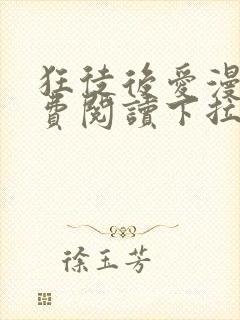 狂徒後愛漫
費閱讀下拉
徐玉芳